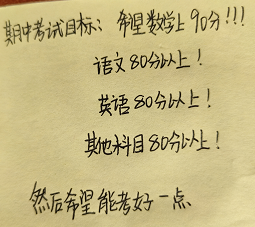 期中考试目标：希望数学上90分!!!
语文80分以上！
英语80分以上！
其他科目80分以上！
然后希望能考好一点、